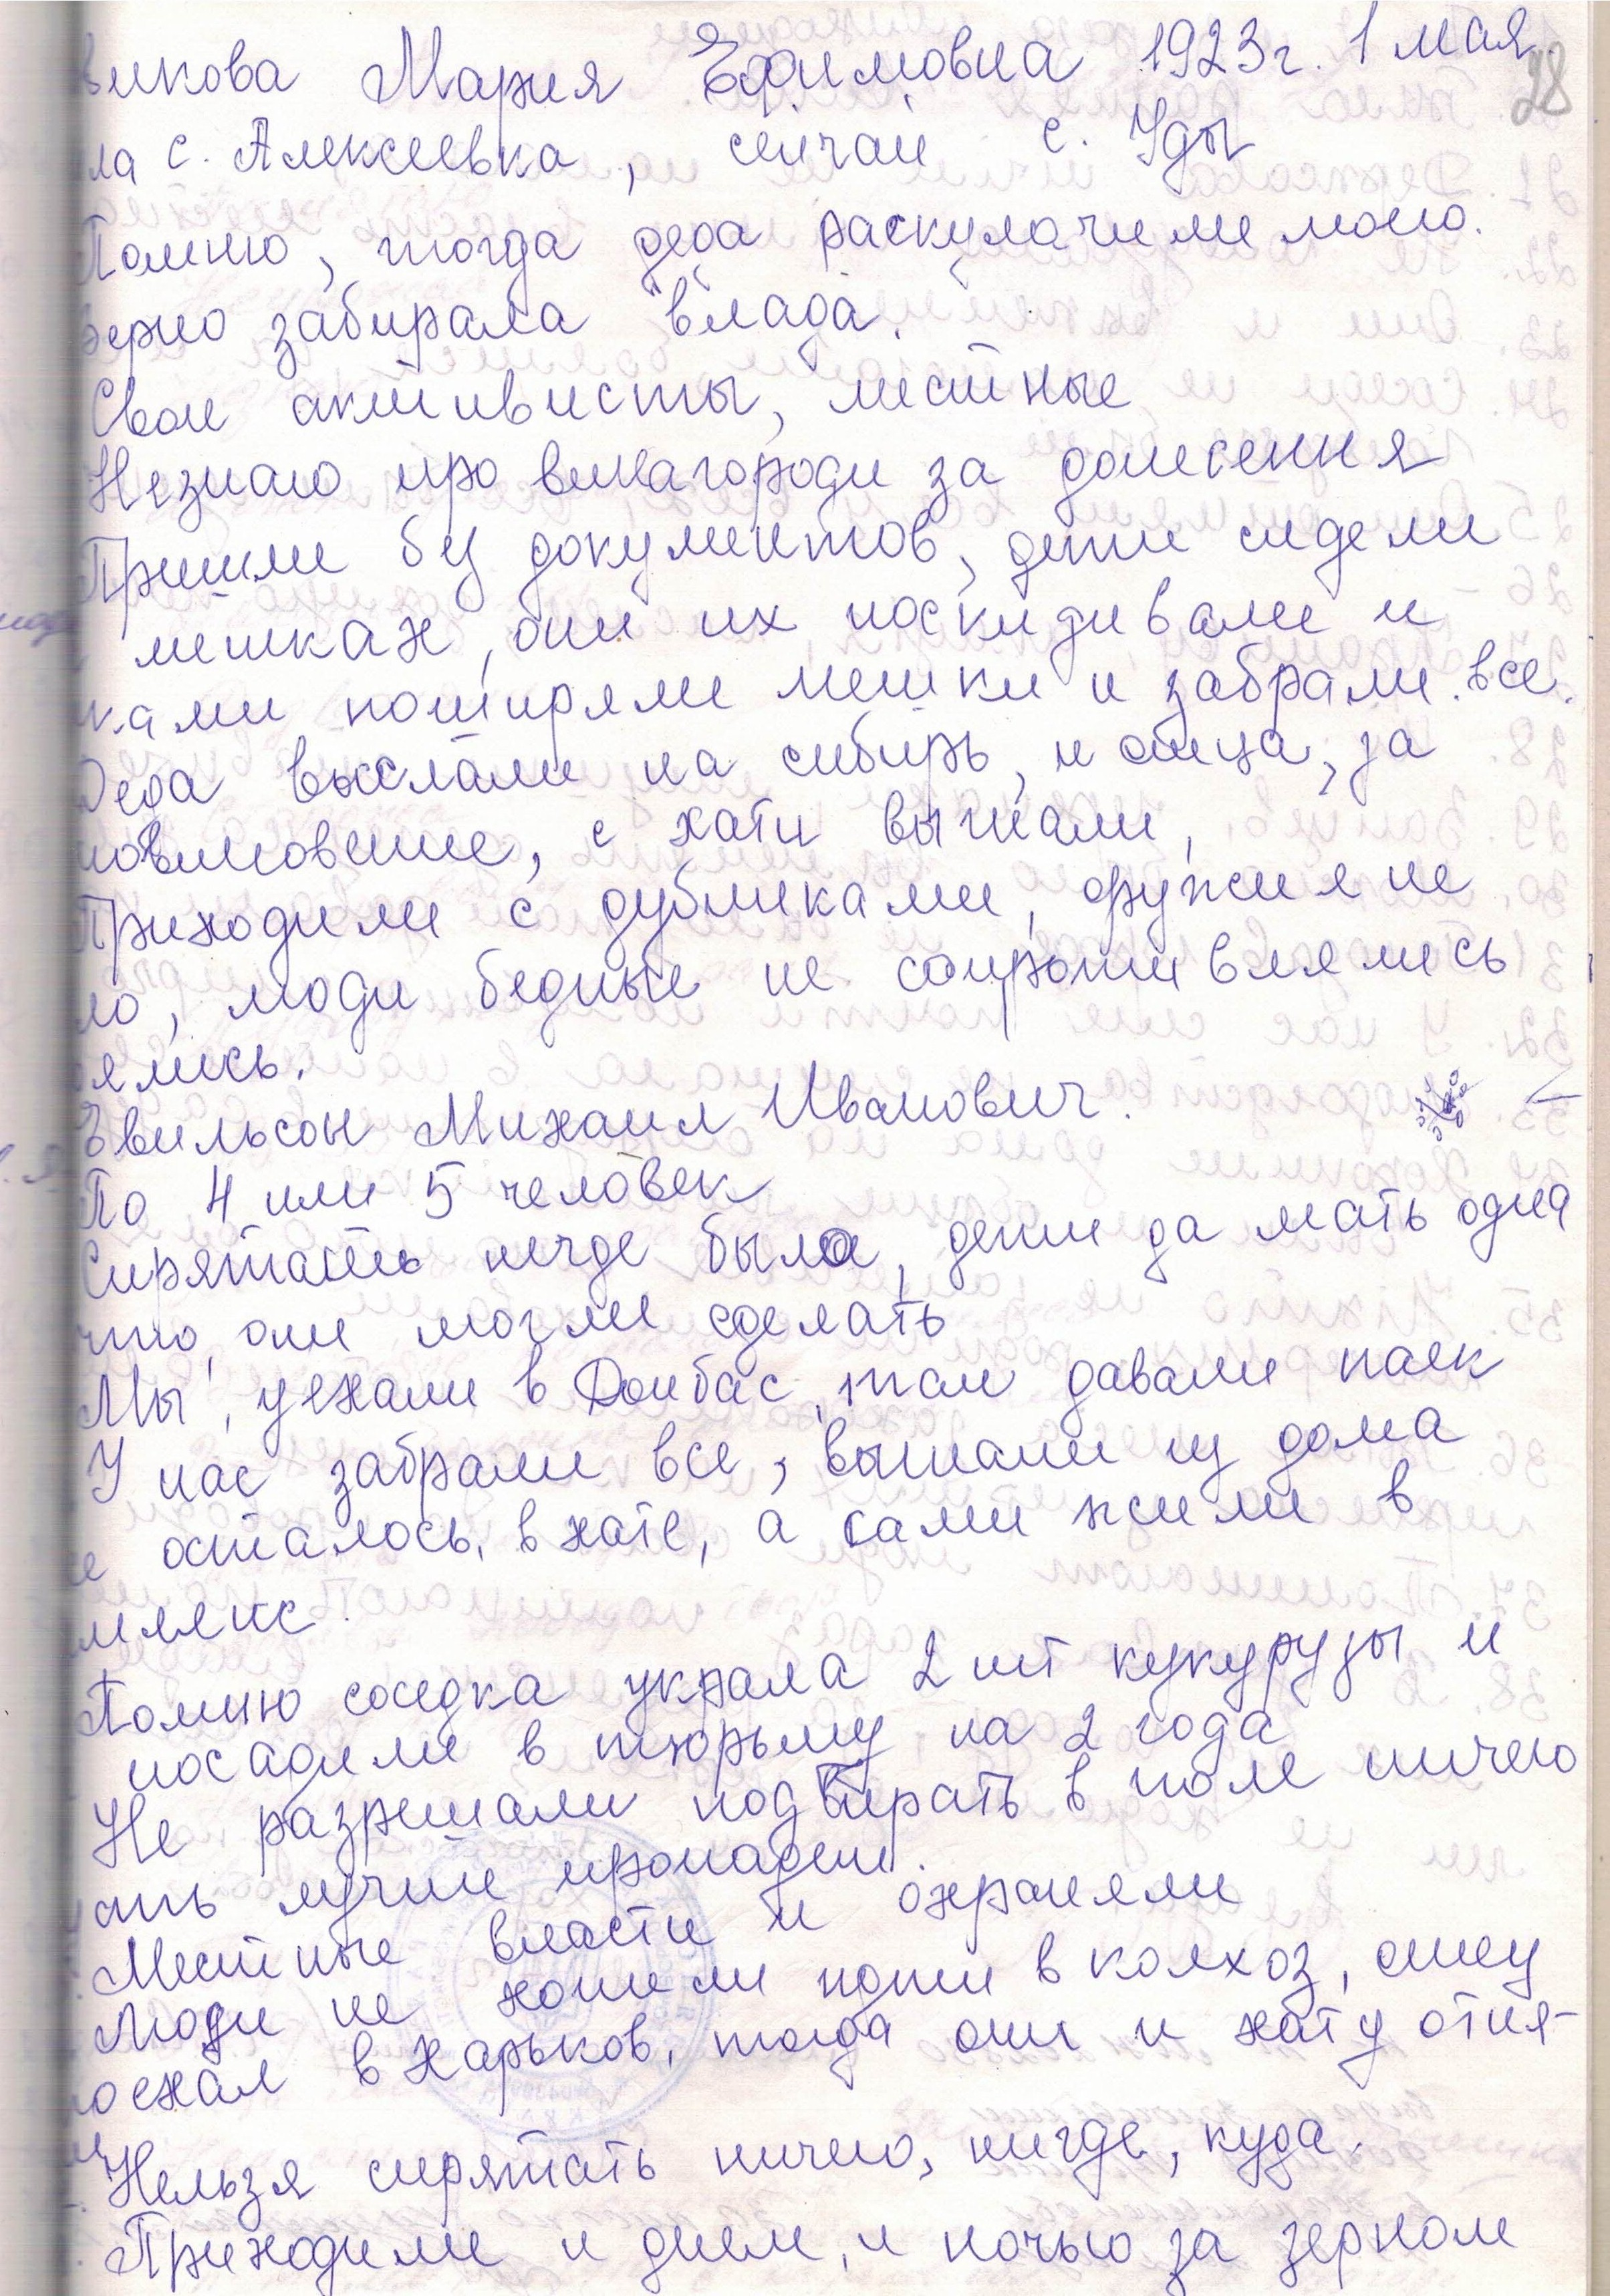 викова Мария Ефимовна 1923г. 1 мая.
28
ла с. Алексеевка, сейчас с. Уды
Помню, тогда деда раскулачили моего.
зерно забирала "влада".
Свои активисты, местные
Незнаю про винагороди за донесення
Пришли без документов, дети сидели
мешках, они их поскидивали и
ками поширяли мешки и забрали все.
Деда выслали на сибирь, и отца, за
новиновение, с хати выгнали,
Приходили с дубликами, оружия не
ло, люди бедные не сопротивлялись
ялись.
Эвильсон Михаил Иванович.
По 4 или 5 человек
Спрятать негде было, дети да мать одна
что они могли сделать
Мы, уехали в Донбас, там давали паек
У нас забрали все, выгнали из дома
е осталось в хате, а сами жили в
млянке.
Помню соседка украла 2 шт кукурузы и
посадили в тюрьму на 2 года
Не разрешали подбирать в поле ничего
ать лучше пропадет.
Местные власти и охраняли
Люди не хотели идти в колхоз, отец
поехал в Харьков, тогда они и хату отня-
ли
Нельзя спрятать ничего, нигде, куда.
Приходили и днем, и ночью за зерном